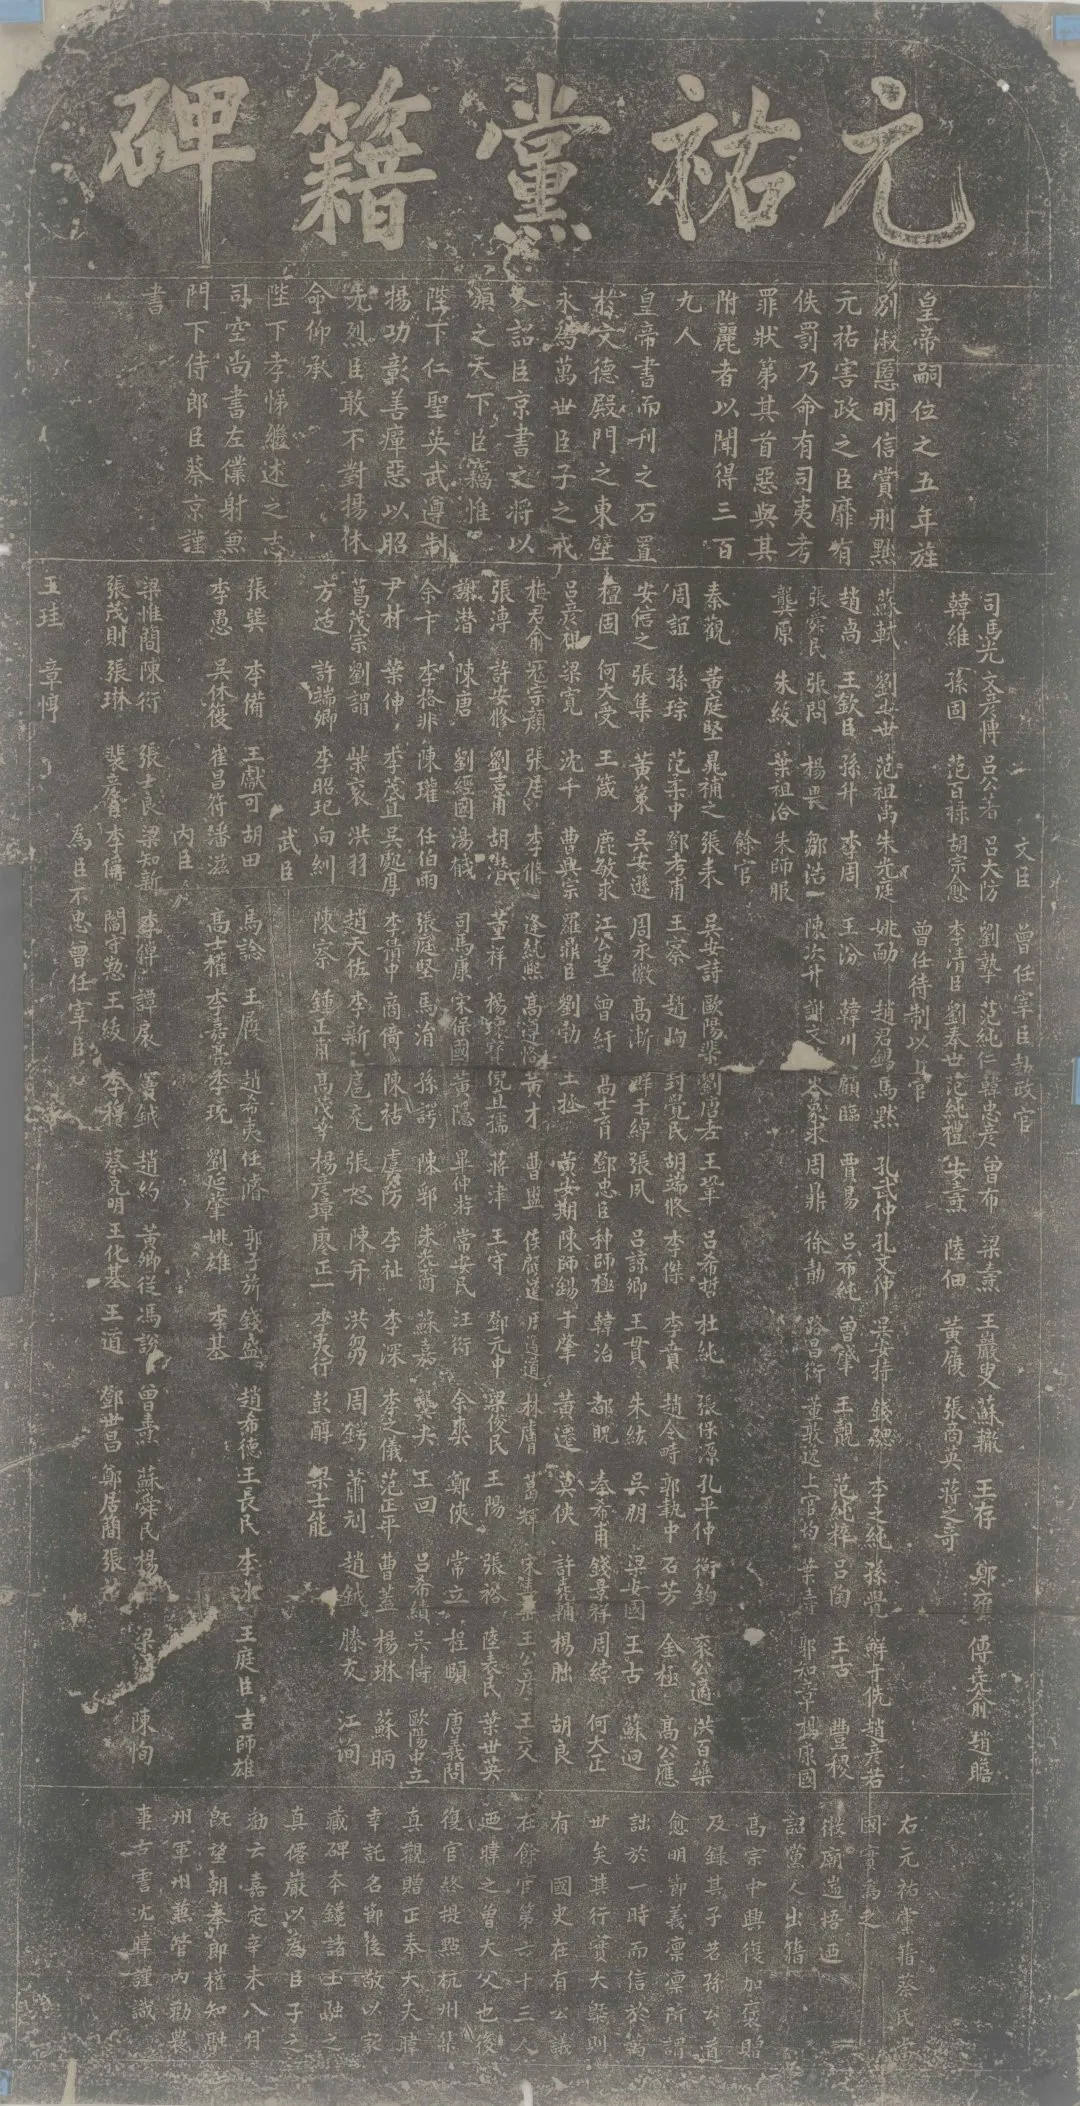 元祐黨籍碑
皇帝嗣位之五年旌
別淑慝明信賞刑黜
元祐害政之臣靡有
佚罰乃命有司夷考
罪狀第其首惡與其
附麗者以聞得三百
九人
皇帝書而刊之石置
於文德殿門之東壁
永為萬世臣子之戒
又詔臣京書之將以
頒之天下臣竊惟
陛下仁聖英武遵制
揚功彰善癉惡以昭
先烈臣敢不對揚休
命仰承
陛下孝悌繼述之志
司空尚書左僕射兼
門下侍郎臣蔡京謹
書
文臣 曾任宰臣執政官
司馬光 文彥博 呂公著 呂大防 劉摯 范純仁 韓忠彥 曾布 梁燾 王巖叟 蘇轍 王存 鄭雍 傅堯俞 趙瞻
韓維 孫固 范百祿 胡宗愈 李清臣 劉奉世 范純禮 安燾 陸佃 黃履 張商英 蔣之奇
曾任待制以上官
蘇軾 劉安世 范祖禹 朱光庭 姚勔 趙君錫 馬默 孔武仲 孔文仲 吳安持 錢勰 李之純 孫覺 鮮于侁 趙彥若
趙卨 王欽臣 孫升 李周 王汾 韓川 顧臨 賈易 呂希純 曾肇 王覿 范純粹 呂陶 王古 豐稷
張舜民 張問 楊畏 鄒浩 陳次升 謝文 周鼎 徐勣 路昌衡 董敦逸 上官均 郭知章 楊康國
龔原 朱紱 葉祖洽 朱師服
餘官
秦觀 黃庭堅 晁補之 張耒 吳安詩 歐陽棐 劉唐老 王鞏 呂希哲 杜純 張保源 孔平仲 衡鈞 袞公適 洪百藥
周誼 孫琮 范柔中 鄧考甫 王察 趙峋 封覺民 胡端修 李傑 李賁 趙令畤 郭執中 石芳 金極 高公應
安信之 張集 黃策 吳安遜 周永徽 高漸 鮮于綽 張夙 呂諒卿 王貫 朱紘 吳朋 梁安國 王古 蘇迥
檀固 何大受 王箴 鹿敏求 江公望 曾紆 高士育 鄧忠臣 种師極 韓治 都貺 秦希甫 錢景祥 周綍 何大正
呂彥祖 梁寬 沈千 曹興宗 羅鼎臣 劉勃 王拯 黃安期 陳師錫 于肇 黃遷 莫俠 許堯輔 楊朏 胡良
梅君俞 寇宗顏 張居 李脩 逢純熙 高遵恪 黃才 曹盥 侯顧道 周遵道 林膚 葛輝 宋壽岳 王公彥 王交
張溥 許安修 劉吉甫 胡潛 董祥 楊瓌寶 倪直孺 蔣津 王守 鄧元中 梁俊民 王陽 張裕 陸表民 葉世英
謝潛 陳唐 劉經國 湯馘 司馬康 宋保國 黃隱 畢仲游 常安民 汪衍 余爽 鄭俠 常立 程頤 唐義問
余卞 李格非 陳瓘 任伯雨 張庭堅 馬涓 孫諤 陳郛 朱光裔 蘇嘉 龔夬 王回 呂希績 吳儔 歐陽中立
尹材 葉伸 李茂直 吳處厚 李積中 商倚 陳祐 虞防 李祉 李深 李之儀 范正平 曹蓋 楊琳 蘇昞
葛茂宗 劉謂 柴袞 洪羽 趙天佐 李新 扈充 張恕 陳并 洪芻 周諤 蕭刓 趙鉞 滕友 江洵
方适 許端卿 李昭玘 向紃 陳察 鍾正甫 高茂華 楊彥璋 廖正一 李夷行 彭醇 梁士能
武臣
張巽 李備 王獻可 胡田 馬諗 王履 趙希夷 任濬 郭子旂 錢盛 趙希德 王長民 李永 王庭臣 吉師雄
李愚 吳休復 崔昌符 潘滋 高士權 李嘉亮 李玩 劉延肇 姚雄 李基
內臣
梁惟簡 陳衍 張士良 梁知新 李倬 譚扆 竇鉞 趙約 黃卿從 馮說 曾燾 蘇舜民 楊 梁 陳恂
張茂則 張琳 裴彥臣 李偁 閻守懃 王紱 李穆 蔡克明 王化基 王道 鄧世昌 鄭居簡 張
為臣不忠曾任宰臣
王珪 章惇
右元祐黨籍蔡氏當
國實為之
徽廟遄悟迺
詔黨人出籍
高宗中興復加褒贈
及錄其子若孫公道
愈明節義凜凜所謂
詘於一時而信於萬
世矣其行實大槩則
有 國史在有公議
在餘官第六十三人
迺暐之曾大父也後
復官終提點杭州集
真觀贈正奉大夫暐
幸託名節後敬以家
藏碑本鑱諸玉融之
真僊巖以為臣子之
勸云嘉定辛未八月
既望朝奉郎權知融
州軍州兼管內勸農
事古雪沈暐謹識